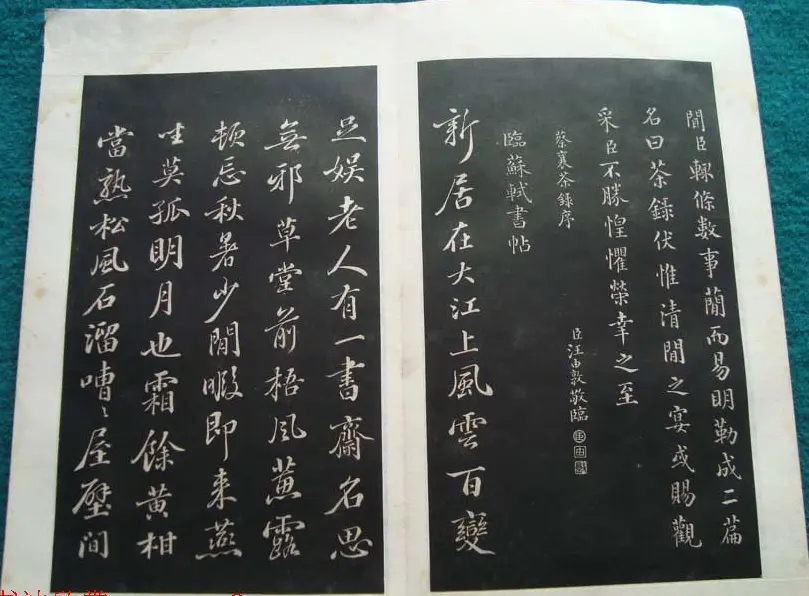 聞臣輒條數事簡而易明勒成二篇
名曰茶錄伏惟清閒之宴或賜觀
采臣不勝惶懼榮幸之至
蔡襄茶錄序
臣汪由敦敬臨
臨蘇軾書帖
新居在大江上風雲百變
足娛老人有一書齋名思
無邪草堂前梧風蕙露
頓忘秋暑少閒暇即來燕
坐莫孤明月也霜餘黃柑
當熟松風石溜嘈〻屋壁間